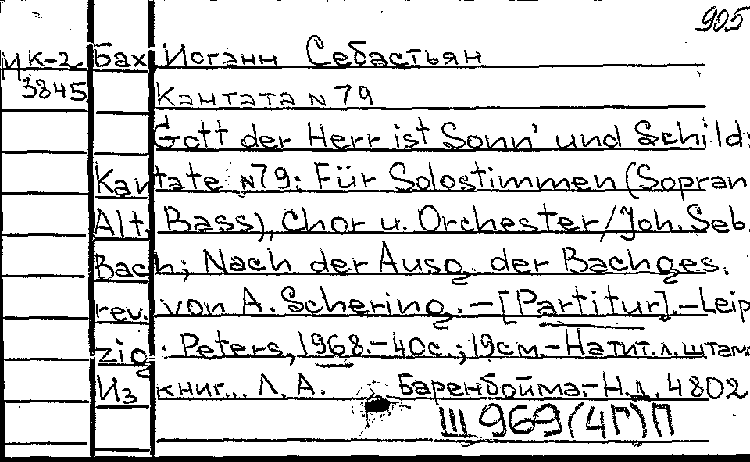 905
ИК-2 Бах Иоганн Себастьян
3845 Кантата N 79
Gott der Herr ist Sonn' und Schild:
Kantate N79: Für Solostimmen (Sopran
Alt. Bass), Chor u. Orchester / Joh. Seb.
Bach; Nach der Ausg. der Bachges.
rev. von A. Schering. - [Partitur]. - Leip
zig: Peters, 1968. - 40 с.; 19 см. - На тит. л. штам
Из книг... Л. А. Баренбойма. - Н.д. 4802
III 969(4Г)П